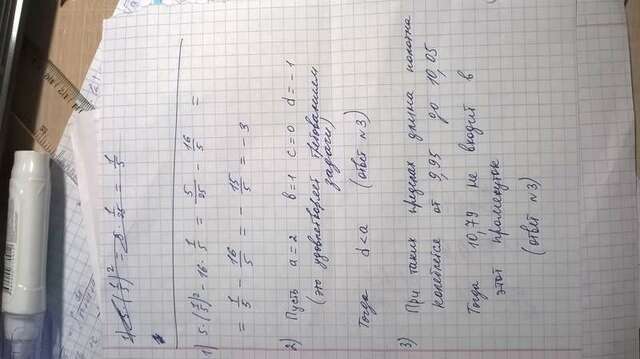 1) 5·(1/5)² = 5·1/25 = 1/5
1) 5·(1/5)² - 16·1/5 = 5/25 - 16/5 =
= 1/5 - 16/5 = - 15/5 = - 3
2) Пусть a=2 b=1 c=0 d=-1
(это удовлетворяет требованиям
задачи)
Тогда d<a (ответ N3)
3) При таких пределах длина полотна
колеблется от 9,95 до 10,05
Тогда 10,79 не входит в
этот промежуток
(ответ N3)